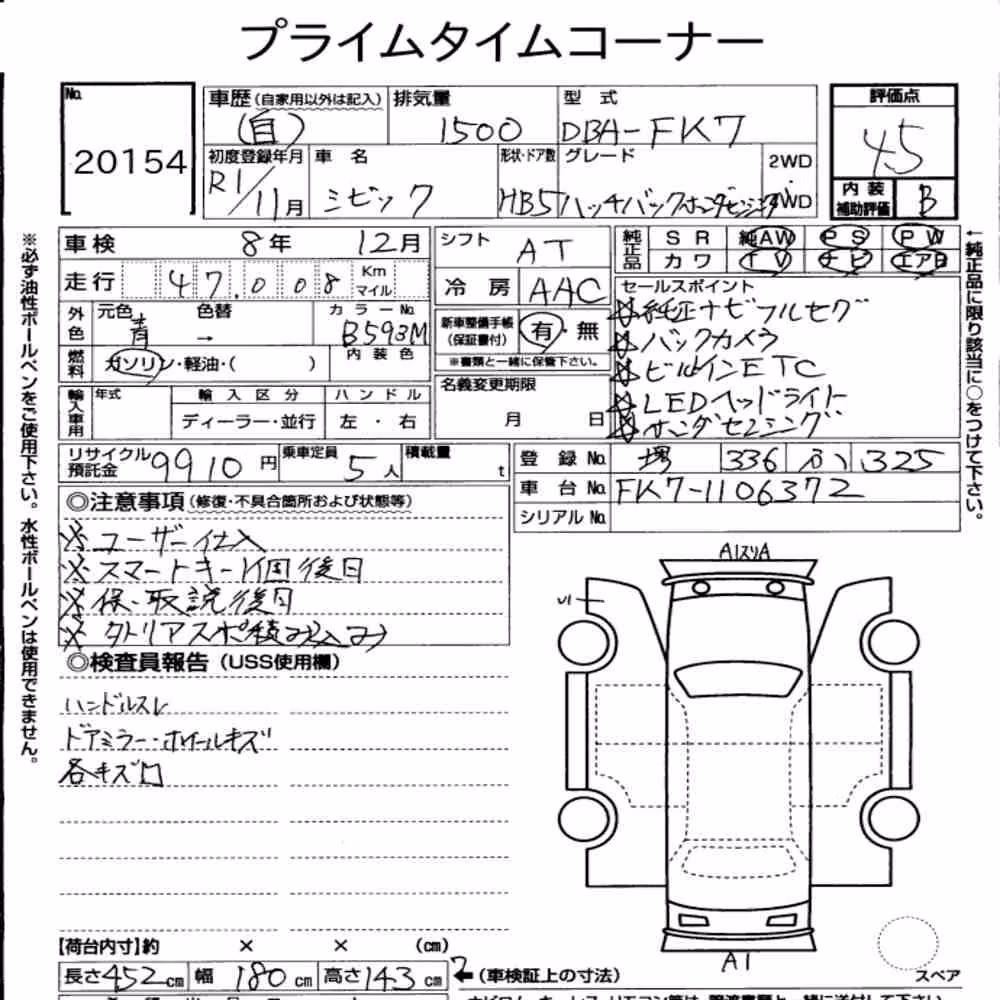 プライムタイムコーナー
No.
20154
車歴(自家用以外は記入) 排気量 型式 評価点
(自) 1500 DBA-FK7 4.5
初度登録年月 車名 形状・ドア数 グレード 2WD
R1/11月 シビック HB5 ハッチバックホンダセンシング 4WD
内装補助評価 B
※必ず油性ボールペンをご使用下さい。水性ボールペンは使用できません。
車検 8年 12月
シフト AT
純正品 SR 純AW PS PW
カワ TV ナビ エアB
←純正品に限り該当に○をつけて下さい。
走行 47,008 Km マイル
冷房 AAC
セールスポイント
☆純正ナビフルセグ
☆バックカメラ
☆ビルインETC
☆LEDヘッドライト
☆ホンダセンシング
外色 元色 色替 カラーNo.
青 → B593M
新車整備手帳(保証書付) 有・無
※書類と一緒に保管下さい。
燃料 ガソリン・軽油・( ) 内装色
名義変更期限
月 日
輸入車用 年式 輸入区分 ハンドル
ディーラー・並行 左・右
リサイクル預託金 9910円 乗車定員 5人 積載量 t
登録No. 堺 336 325
車台No. FK7-1106372
シリアルNo.
◎注意事項(修復・不具合箇所および状態等)
※ユーザー仕入
※スマートキー1個後日
※保・取説後日
※タトリアスポ積み込み
◎検査員報告(USS使用欄)
ハンドルスレ
ドアミラー・ホイールキズ
各キズ口
A1スリA
U1
A1
スペア
【荷台内寸】約 × × (cm)
長さ452cm 幅180cm 高さ143cm
←(車検証上の寸法)